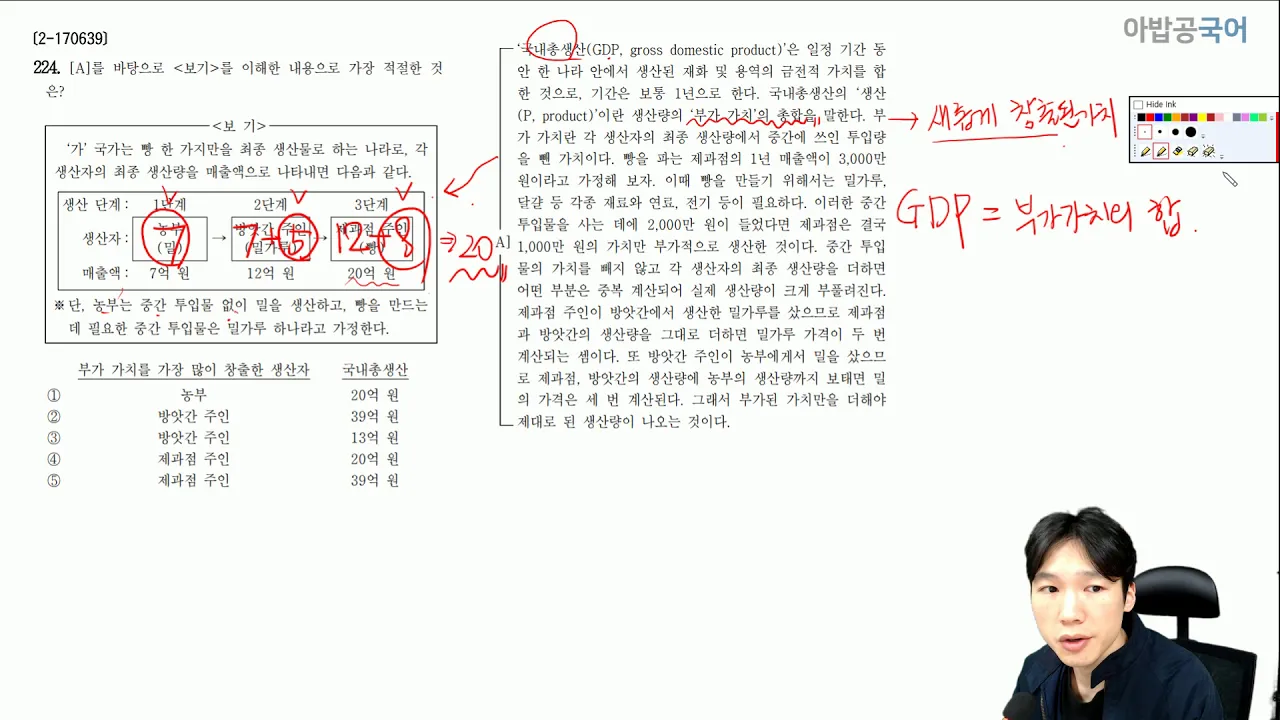 [2-170639]
224. [A]를 바탕으로 <보기>를 이해한 내용으로 가장 적절한 것
은?
<보 기>
'가' 국가는 빵 한 가지만을 최종 생산물로 하는 나라로, 각
생산자의 최종 생산량을 매출액으로 나타내면 다음과 같다.
생산 단계: 1단계 2단계 3단계
생산자: 농부 → 방앗간 주인 → 제과점 주인
(밀) (밀가루) (빵)
7 7+5 12+8 ⇒ 20
매출액: 7억 원 12억 원 20억 원
※ 단, 농부는 중간 투입물 없이 밀을 생산하고, 빵을 만드는
데 필요한 중간 투입물은 밀가루 하나라고 가정한다.
부가 가치를 가장 많이 창출한 생산자 국내총생산
① 농부 20억 원
② 방앗간 주인 39억 원
③ 방앗간 주인 13억 원
④ 제과점 주인 20억 원
⑤ 제과점 주인 39억 원
A]
'국내총생산(GDP, gross domestic product)'은 일정 기간 동
안 한 나라 안에서 생산된 재화 및 용역의 금전적 가치를 합
한 것으로, 기간은 보통 1년으로 한다. 국내총생산의 '생산
(P, product)'이란 생산량의 '부가 가치'의 총합을 말한다. 부
가 가치란 각 생산자의 최종 생산량에서 중간에 쓰인 투입량
을 뺀 가치이다. 빵을 파는 제과점의 1년 매출액이 3,000만
원이라고 가정해 보자. 이때 빵을 만들기 위해서는 밀가루,
달걀 등 각종 재료와 연료, 전기 등이 필요하다. 이러한 중간
투입물을 사는 데에 2,000만 원이 들었다면 제과점은 결국
1,000만 원의 가치만 부가적으로 생산한 것이다. 중간 투입
물의 가치를 빼지 않고 각 생산자의 최종 생산량을 더하면
어떤 부분은 중복 계산되어 실제 생산량이 크게 부풀려진다.
제과점 주인이 방앗간에서 생산한 밀가루를 샀으므로 제과점
과 방앗간의 생산량을 그대로 더하면 밀가루 가격이 두 번
계산되는 셈이다. 또 방앗간 주인이 농부에게서 밀을 샀으므
로 제과점, 방앗간의 생산량에 농부의 생산량까지 보태면 밀
의 가격은 세 번 계산된다. 그래서 부가된 가치만을 더해야
제대로 된 생산량이 나오는 것이다.
아밥공국어
Hide Ink
→ 새롭게 창출된 가치
GDP = 부가가치의 합.